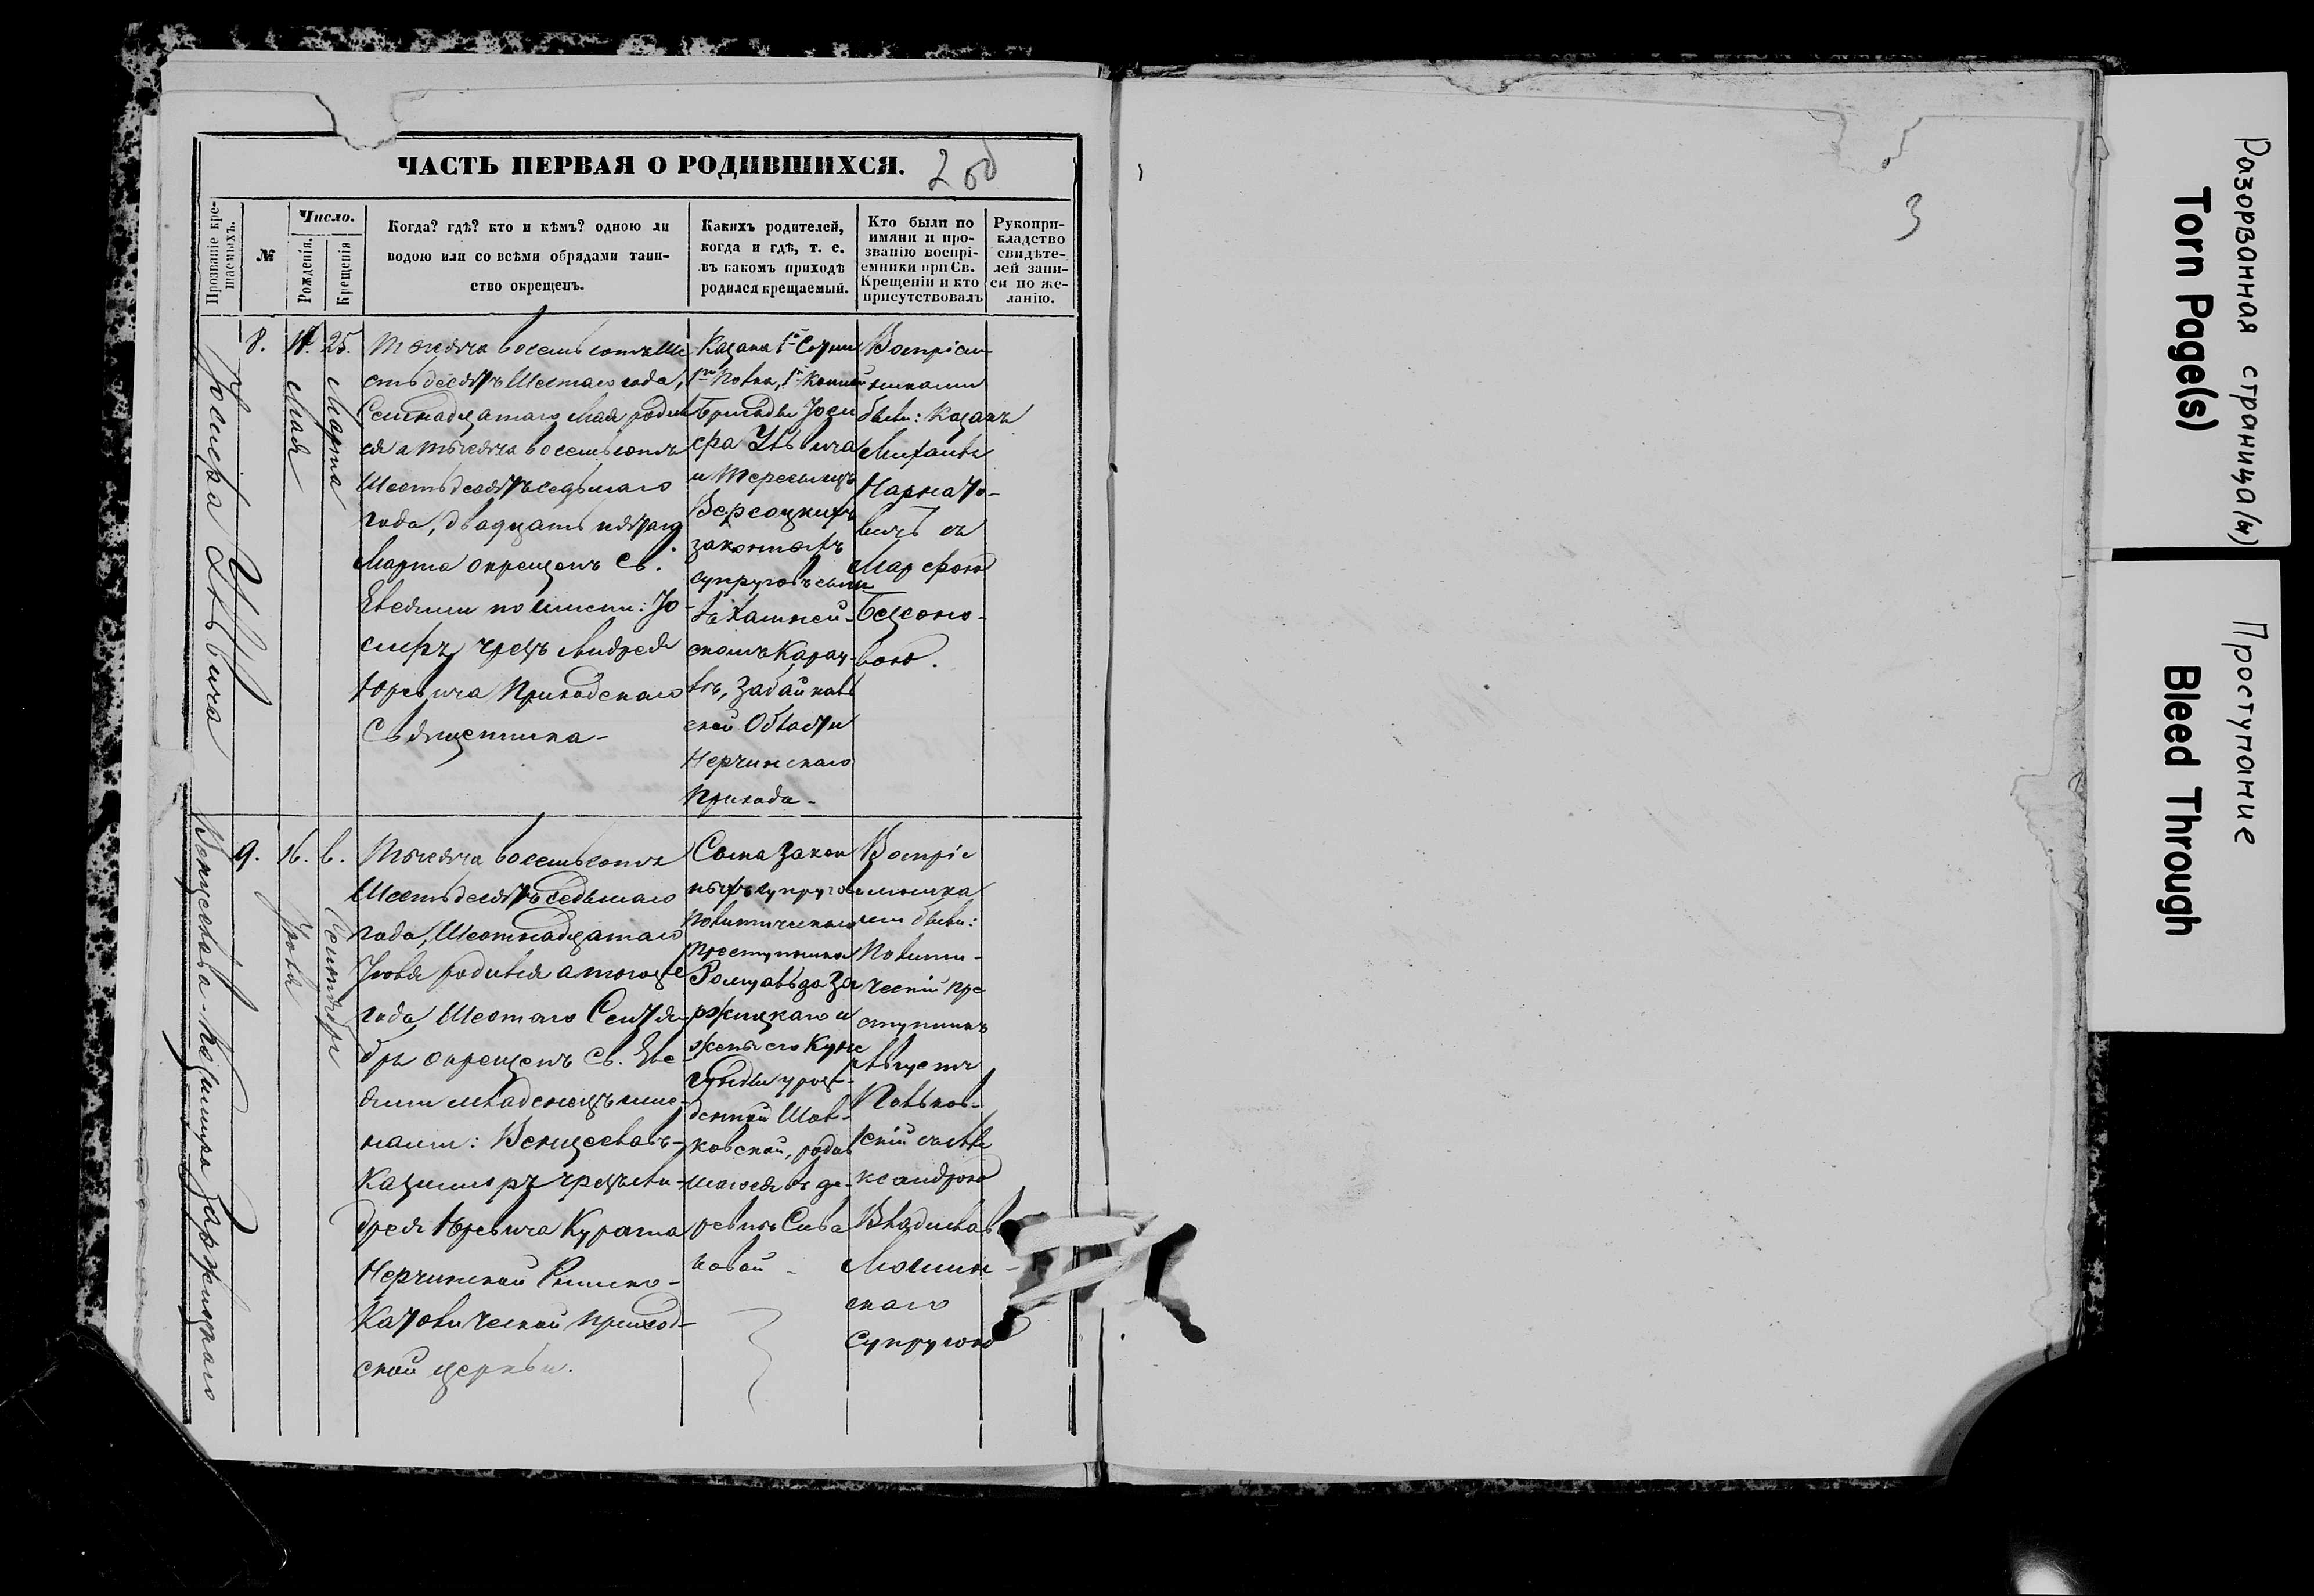 ЧАСТЬ ПЕРВАЯ О РОДИВШИХСЯ.
Прозваніе кре-
щаемыхъ.
№
Число.
Рожденія.
Крещенія
Когда? гдѣ? кто и кѣмъ? одною ли
водою или со всѣми обрядами таин-
ство окрещенъ.
Какихъ родителей,
когда и гдѣ, т. е.
въ какомъ приходѣ
родился крещаемый.
Кто были по
имяни и про-
званію воспрі-
емники при Св.
Крещеніи и кто
присутствовалъ
Рукопри-
кладство
свидѣте-
лей запи-
си по же-
ланію.
8.
Мая
25.
Марта
Тысяча восемьсотъ Ше
стьдесятъ Шестаго года,
Семнадцатаго Мая родил
ся а тысяча восемьсотъ
Шестьдесятъ седьмаго
года, двадцать пятаго
Марта окрещенъ Св.
Елеями по имени: Іо-
сифъ чрезъ Андрея
Юревича Приходскаго
Священника-
Казака 1й Сотни
1го Полка, 1й Конной
Бригады Іоси
фа
и Терезы изъ
законныхъ
супруговъ сынъ
скомъ Карау-
лѣ, Забайкаль
ской Области
Нерчинскаго
Прихода-
Воспріем-
никами
были: Казакъ
Михаилъ
вичъ съ
Марфою
вою.
9.
16.
Іюля
6.
Сентября
Венцеслава-Казимира Заржицкаго
Тысяча восемьсотъ
Шестьдесятъ седьмаго
года, Шестнадцатаго
Іюля родился а тогоже
года Шестаго Сентя-
бря окрещенъ Св. Еле-
ями младенецъ име-
нами: Венцеславъ-
Казимиръ чрезъ Ан-
дрея Юревича Курата
Нерчинской Римско-
Католической приход-
ской церкви.
Сына закон
ныхъ супруговъ
Политическаго
преступника
Ромуальда За
ржицкаго и
жены его Куне
гунды урож-
денной
ковской, родив
шагося въ де-
ревнѣ Сива
ковой -
Воспріе
мника
ми были:
Полити-
ческій пре
ступникъ
Августъ
скій съ Але
ксандрою
Владислава
скаго
супругою
3
Разорванная страница/(ы)
Torn Page(s)
Проступание
Bleed Through